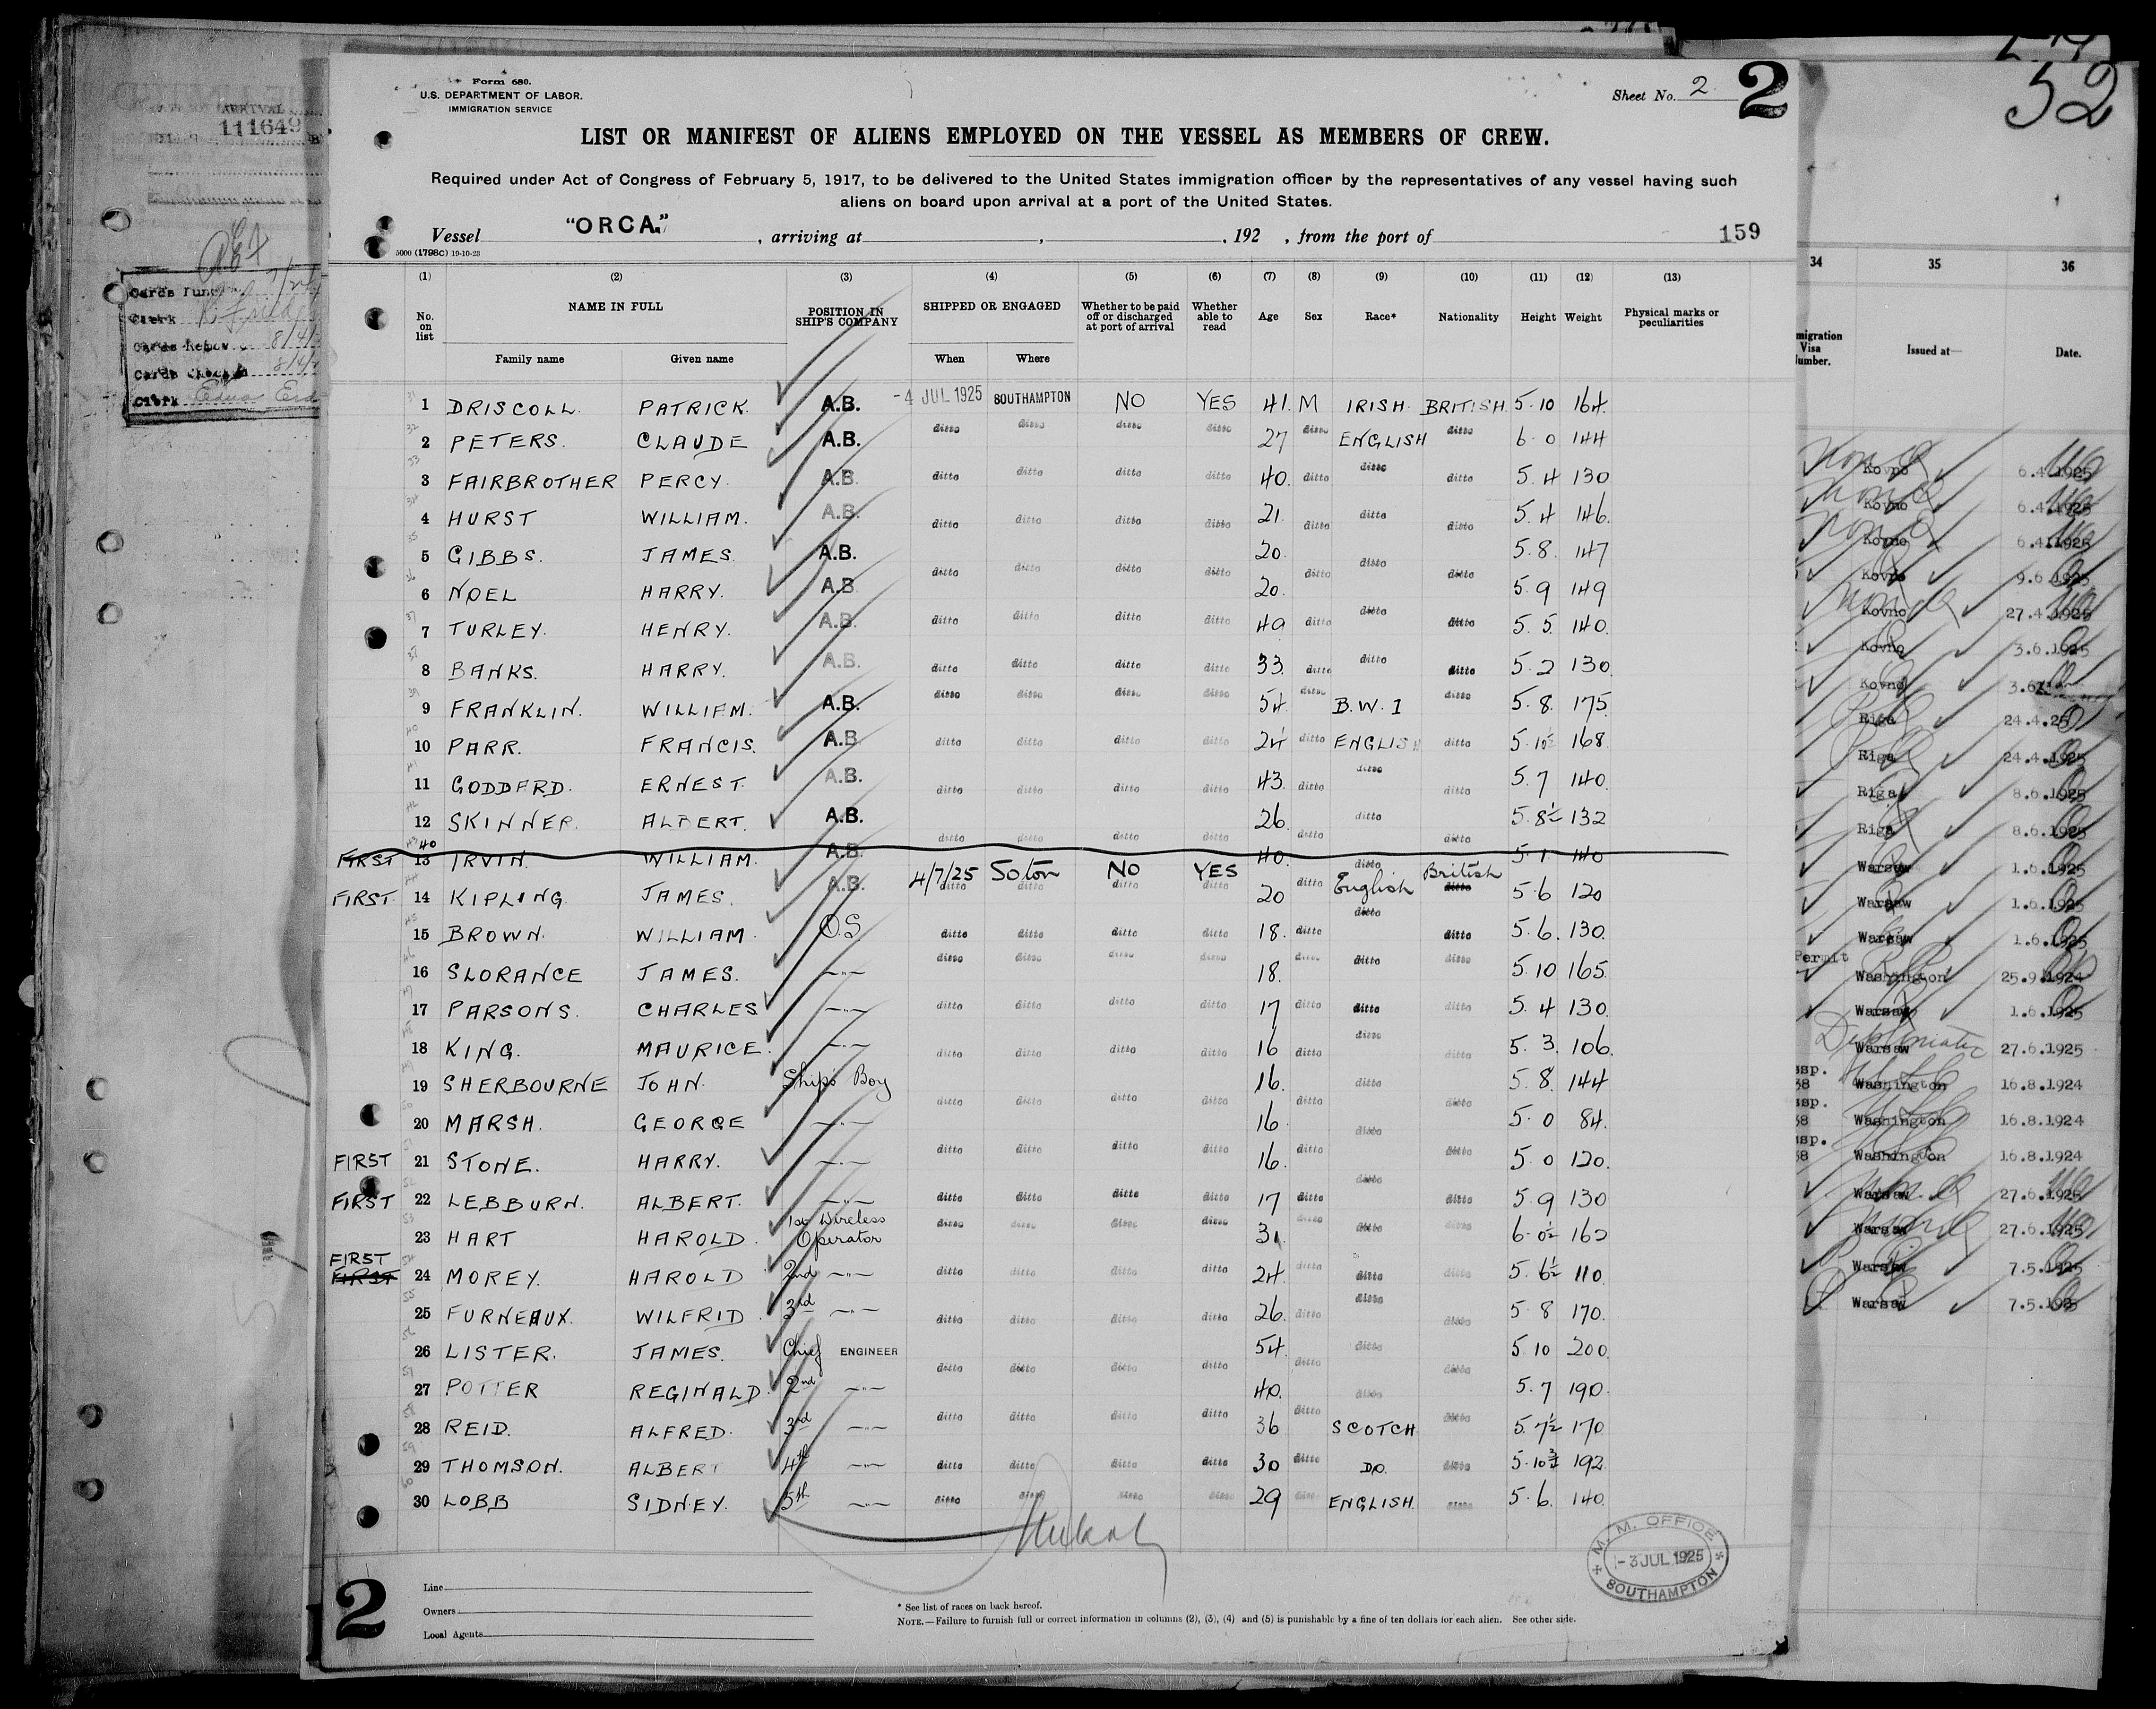 Form 680.
U.S. DEPARTMENT OF LABOR.
IMMIGRATION SERVICE
Sheet No. 2 2
52
111649
LIST OR MANIFEST OF ALIENS EMPLOYED ON THE VESSEL AS MEMBERS OF CREW.
Required under Act of Congress of February 5, 1917, to be delivered to the United States immigration officer by the representatives of any vessel having such
aliens on board upon arrival at a port of the United States.
Vessel "ORCA." , arriving at , , 192 , from the port of 159
5000 (1798C) 19-10-23
(1) (2) (3) (4) (5) (6) (7) (8) (9) (10) (11) (12) (13)
No. on list NAME IN FULL POSITION IN SHIP'S COMPANY SHIPPED OR ENGAGED Whether to be paid off or discharged at port of arrival Whether able to read Age Sex Race* Nationality Height Weight Physical marks or peculiarities
Family name Given name When Where
1 DRISCOLL. PATRICK. A.B. -4 JUL 1925 SOUTHAMPTON NO YES 41. M IRISH. BRITISH. 5.10 164.
2 PETERS. CLAUDE A.B. ditto ditto ditto ditto 27 ditto ENGLISH ditto 6.0 144
3 FAIRBROTHER PERCY. A.B. ditto ditto ditto ditto 40. ditto ditto ditto 5.4 130
4 HURST WILLIAM. A.B. ditto ditto ditto ditto 21. ditto ditto ditto 5.4 146.
5 GIBBS. JAMES. A.B. 20. ditto 5.8. 147
6 NOEL HARRY. A.B. ditto ditto ditto ditto 20. ditto ditto 5.9 149
7 TURLEY. HENRY. A.B. ditto ditto ditto ditto 49 ditto ditto ditto 5.5. 140.
8 BANKS. HARRY. A.B. ditto ditto ditto ditto 33. ditto ditto ditto 5.2 130.
9 FRANKLIN. WILLIAM. A.B. ditto ditto ditto ditto 54. ditto B.W.I ditto 5.8. 175.
10 PARR. FRANCIS. A.B. ditto ditto ditto ditto 24 ditto ENGLISH ditto 5.10½ 168.
11 GODDARD. ERNEST. A.B. ditto ditto ditto ditto 43. ditto ditto ditto 5.7 140.
12 SKINNER. ALBERT. A.B. ditto ditto ditto ditto 26. ditto ditto ditto 5.8½ 132
FIRST 13 IRVIN. WILLIAM. A.B. 40. ditto 5.1 140
FIRST. 14 KIPLING. JAMES. A.B. 4/7/25 Soton NO YES ditto ditto ditto ditto 20 ditto English British ditto 5.6 120
15 BROWN. WILLIAM. O.S. ditto ditto ditto ditto 18. ditto ditto ditto 5.6. 130.
16 SLORANCE JAMES. —"— ditto ditto ditto ditto 18. ditto ditto ditto 5.10 165.
17 PARSONS. CHARLES —"— ditto ditto ditto ditto 17 ditto ditto ditto 5.4 130.
18 KING. MAURICE. —"— ditto ditto ditto ditto 16 ditto ditto ditto 5.3. 106.
19 SHERBOURNE JOHN. Ships Boy 16. ditto 5.8. 144
20 MARSH. GEORGE —"— ditto ditto ditto ditto 16. ditto ditto ditto 5.0 84.
FIRST 21 STONE. HARRY. —"— ditto ditto ditto ditto 16. ditto ditto 5.0 120.
FIRST 22 LEBBURN. ALBERT. —"— ditto ditto ditto ditto 17 ditto ditto ditto 5.9 130
23 HART HAROLD. 1st Wireless Operator ditto ditto ditto ditto 31. ditto ditto ditto 6.0½ 162
FIRST
FIRST 24 MOREY. HAROLD 2nd —"— ditto ditto ditto ditto 24. ditto ditto ditto 5.6½ 110.
25 FURNEAUX. WILFRID. 3rd —"— ditto ditto ditto ditto 26. ditto ditto ditto 5 8 170.
26 LISTER. JAMES. Chief ENGINEER 54. ditto 5 10 200.
27 POTTER REGINALD. 2nd —"— ditto ditto ditto ditto 40. ditto ditto ditto 5.7 190.
28 REID. ALFRED. 3rd —"— ditto ditto ditto ditto 36 ditto SCOTCH ditto 5.7½ 170
29 THOMSON. ALBERT 4th —"— ditto ditto ditto ditto 30 ditto DO. ditto 192.
30 LOBB SIDNEY. 5th —"— ditto ditto ditto ditto 29 ditto ENGLISH. ditto 5.6. 140.
M. M. OFFICE
-3 JUL 1925
SOUTHAMPTON
2
Line
Owners
Local Agents
* See list of races on back hereof.
NOTE.—Failure to furnish full or correct information in columns (2), (3), (4) and (5) is punishable by a fine of ten dollars for each alien. See other side.
34 35 36
migration Visa Number. Issued at— Date.
Kovno 6.4.1925
Kovno 6.4.1925
Kovno 6.4.1925
Kovno 9.6.1925
Kovno 27.4.1925
Kovno 3.6.1925
Kovno
Riga 24.4.25
Riga 24.4.1925
Riga 8.6.1925
Riga 8.6.1925
Warsaw 1.6.1925
Warsaw 1.6.1925
Warsaw 1.6.1925
Permit
Washington 25.9.1924
Warsaw 1.6.1925
Diplomatic
Warsaw 27.6.1925
ssp.
38 Washington 16.8.1924
ssp.
38 Washington 16.8.1924
ssp.
38 Washington 16.8.1924
Warsaw 27.6.1925
Warsaw 27.6.1925
Warsaw 7.5.1925
Warsaw 7.5.1925